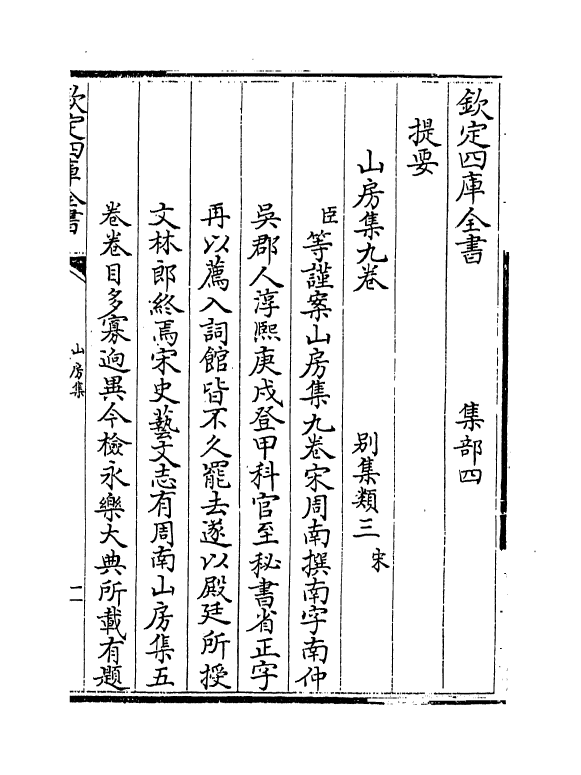 欽定四庫全書　集部四
提要
山房集九卷　別集類三宋
臣等謹案山房集九卷宋周南撰南字南仲
吳郡人淳熙庚戌登甲科官至秘書省正字
再以薦入詞館皆不久罷去遂以殿廷所授
文林郎終焉宋史藝文志有周南山房集五
卷卷目多寡逈異今檢永樂大典所載有題
欽定四庫全書
山房集
一